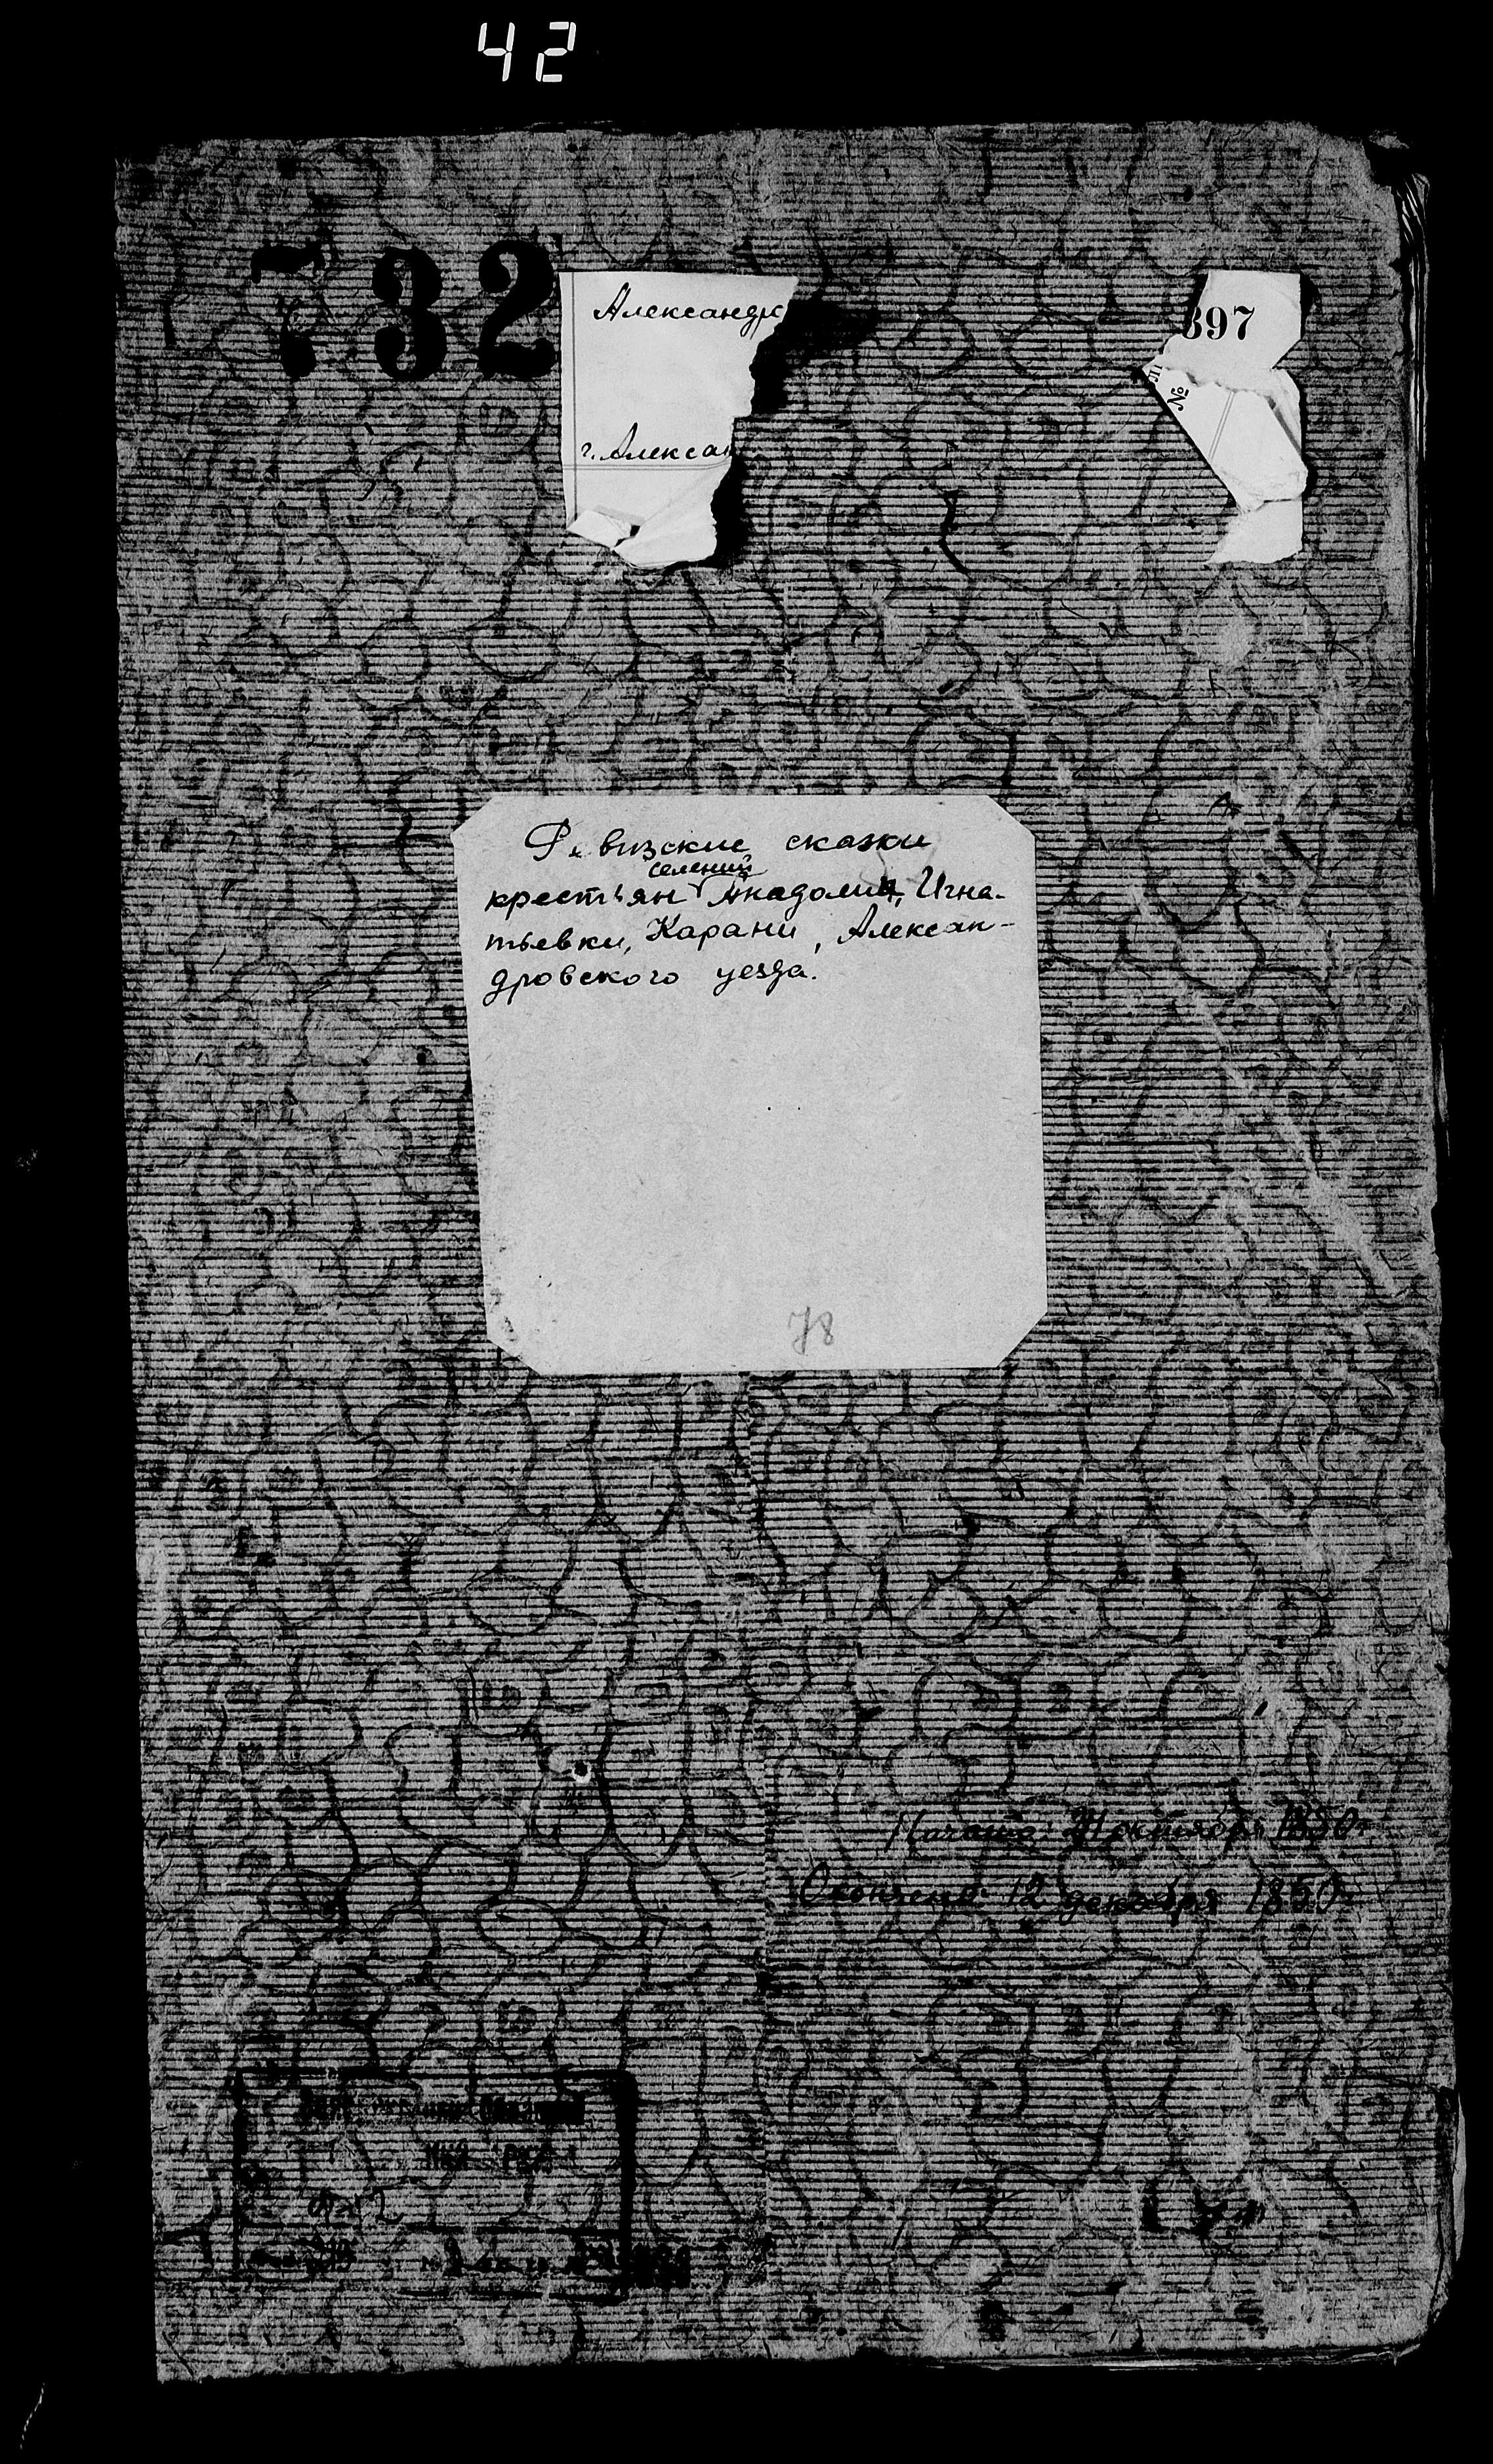 42
732
Александро
г. Алексан
397
№
Ревизские сказки
селений
крестьян Анадолии, Игна-
тьевки, Карани, Александ-
дровского уезда.
78
Начато: 21 октября 1850 г.
Окончено: 12 декабря 1850 г.